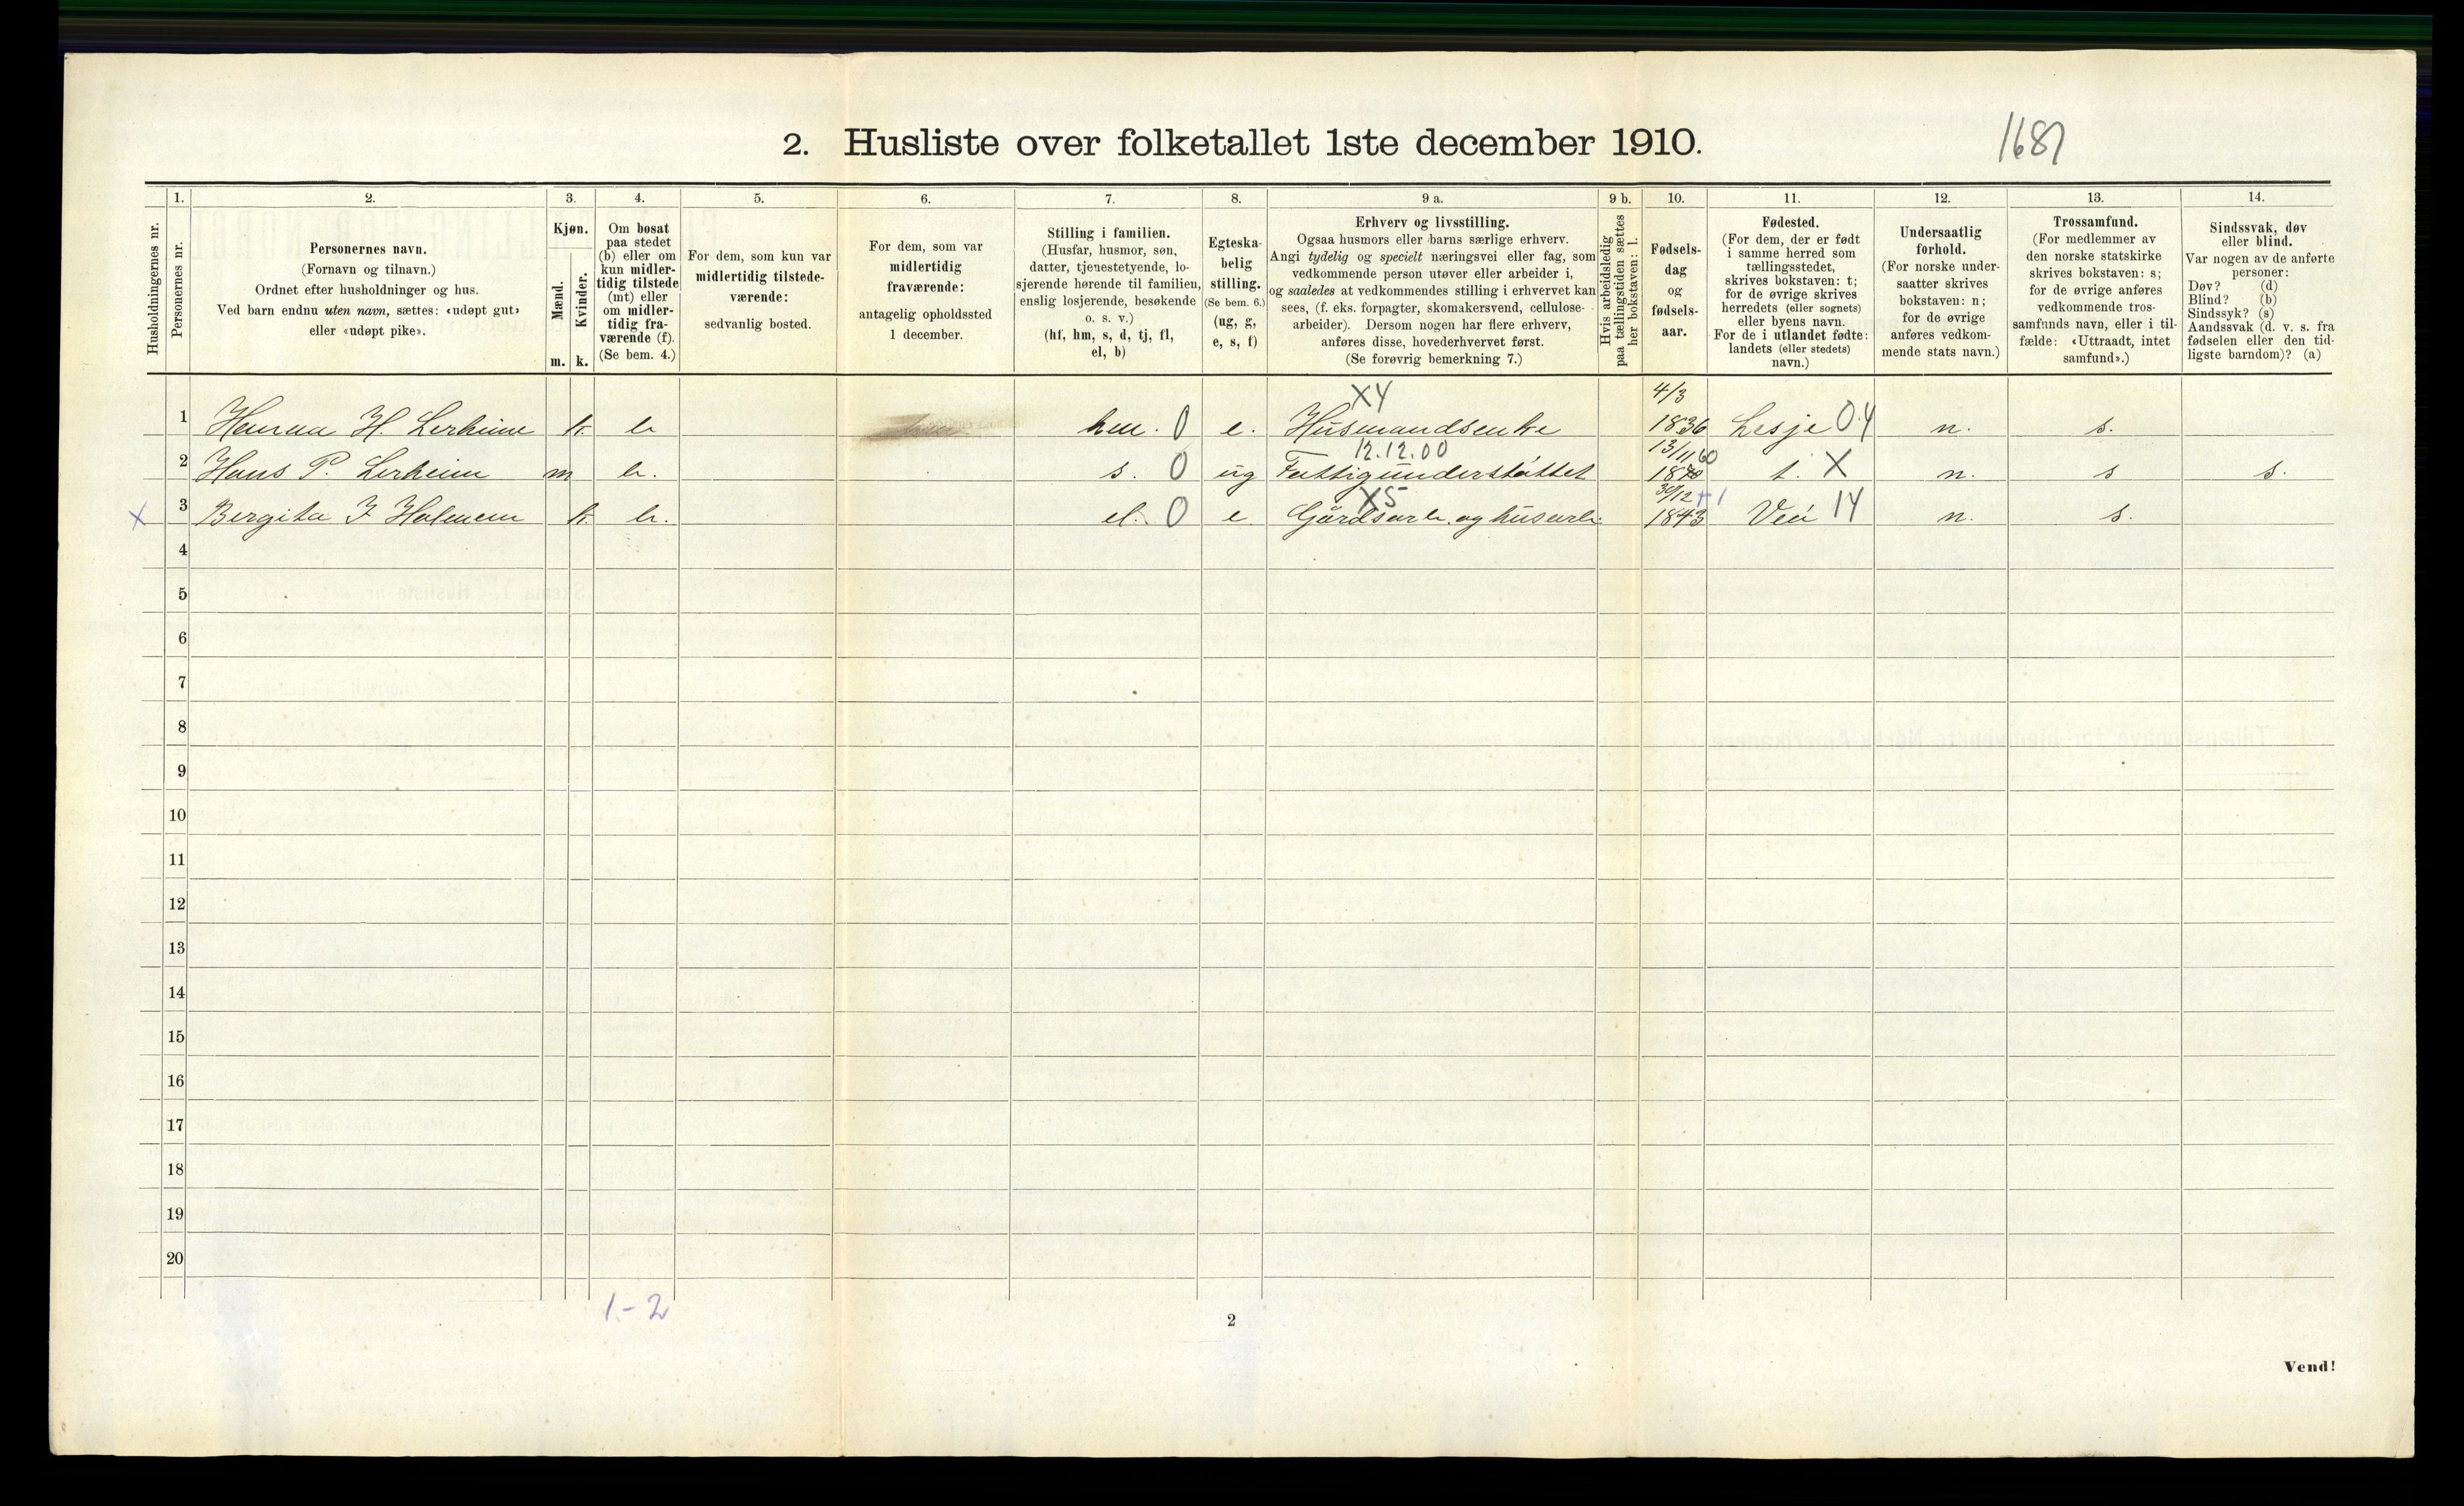 2. Husliste over folketallet 1ste december 1910.
1687
1. 2. 3. 4. 5. 6. 7. 8. 9 a. 9 b. 10. 11. 12. 13. 14.
Husholdningernes nr.
Personernes nr.
Personernes navn.
(Fornavn og tilnavn.)
Ordnet efter husholdninger og hus.
Ved barn endnu uten navn, sættes: «udøpt gut»
eller «udøpt pike».
Kjøn.
Mænd.
Kvinder.
m. k.
Om bosat
paa stedet
(b) eller om
kun midler-
tidig tilstede
(mt) eller
om midler-
tidig fra-
værende (f).
(Se bem. 4.)
For dem, som kun var
midlertidig tilstede-
værende:
sedvanlig bosted.
For dem, som var
midlertidig
fraværende:
antagelig opholdssted
1 december.
Stilling i familien.
(Husfar, husmor, søn,
datter, tjenestetyende, lo-
sjerende hørende til familien,
enslig losjerende, besøkende
o. s. v.)
(hf, hm, s, d, tj, fl,
el, b)
Egteska-
belig
stilling.
(Se bem. 6.)
(ug, g,
e, s, f)
Erhverv og livsstilling.
Ogsaa husmors eller barns særlige erhverv.
Angi tydelig og specielt næringsvei eller fag, som
vedkommende person utøver eller arbeider i,
og saaledes at vedkommendes stilling i erhvervet kan
sees, (f. eks. forpagter, skomakersvend, cellulose-
arbeider). Dersom nogen har flere erhverv,
anføres disse, hovederhvervet først.
(Se forøvrig bemerkning 7.)
Hvis arbeidsledig
paa tællingstiden sættes
her bokstaven: l.
Fødsels-
dag
og
fødsels-
aar.
Fødested.
(For dem, der er født
i samme herred som
tællingsstedet,
skrives bokstaven: t;
for de øvrige skrives
herredets (eller sognets)
eller byens navn.
For de i utlandet fødte:
landets (eller stedets)
navn.)
Undersaatlig
forhold.
(For norske under-
saatter skrives
bokstaven: n;
for de øvrige
anføres vedkom-
mende stats navn.)
Trossamfund.
(For medlemmer av
den norske statskirke
skrives bokstaven: s;
for de øvrige anføres
vedkommende tros-
samfunds navn, eller i til-
fælde: «Uttraadt, intet
samfund».)
Sindssvak, døv
eller blind.
Var nogen av de anførte
personer:
Døv? (d)
Blind? (b)
Sindssyk? (s)
Aandssvak (d. v. s. fra
fødselen eller den tid-
ligste barndom)? (a)
X4 4/3
1 H. Lerheim k. b hm. 0 e. Husmandsenke 1836 Lesje 04 n. s.
12.12.00 13/11 60
2 Hans P. Lerheim m b. s. 0 ug Fattigunderstøttet t. X n. s s.
X5 30/12 +1
X 3 Bergita J Holmem k. b. el. 0 e Gårdsarb. og husarb. 1843 Veø 14 n. s.
4
5
6
7
8
9
10
11
12
13
14
15
16
17
18
19
20
1-2
2
Vend!